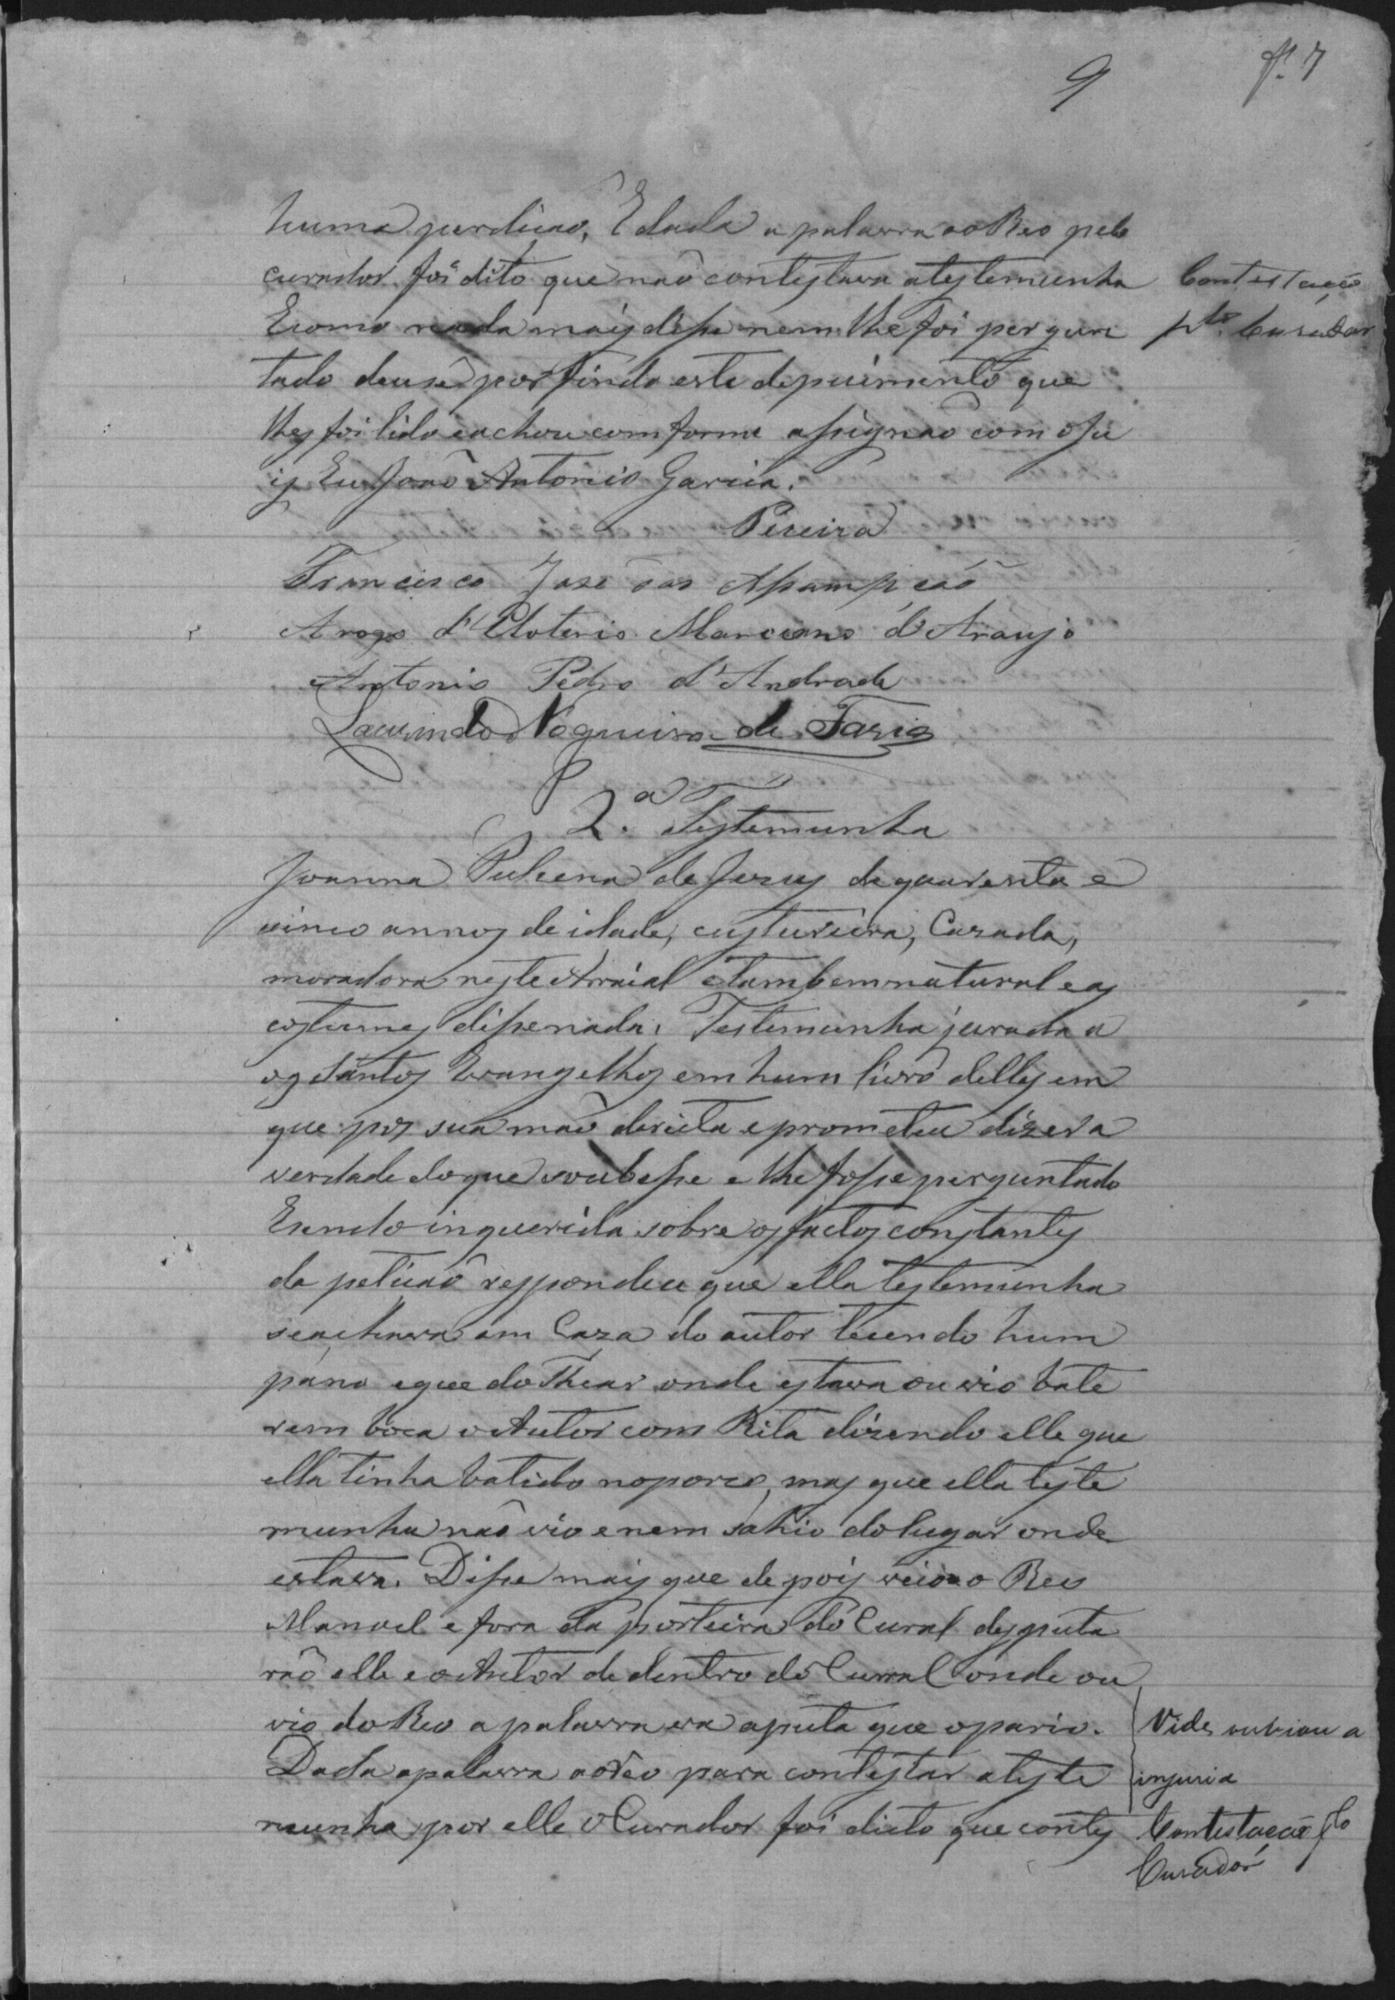 9
fl. 7
huma perdicao, E dada a palavra ao Reo pelo
curador foi dito que naõ contestava atestemunha
Contestação
Ecomo nada mais disse nem lhe foi pergun
plo Curador
tado deuse por findo este depuimento que
lhes foi lido eachou comforme assignaõ com oJu
is Eu Joaõ Antonio Garcia.
Pereira
Francisco Jose das
Arogo d'Eloterio Marciano d'Araujo
Antonio Pedro d'Andrade
Laurindo Nogueira de Faria
2.a Testemunha
Joanna Pulcena de Jesus de quarenta e
cinco annos de idade, custureira, Cazada,
moradora neste Arraial etambem natural eas
costumes disse nada. Testemunha jurada a
os Santos Evangelhos em hum livro delles em
que pos sua maõ direita e prometeu dizer a
verdade doque soubesse e lhe fosse perguntado
Esendo inquerida sobre osfactos constantes
da peticaõ respondeu que ella testemunha
seachava em Caza do autor tecendo hum
pano eque do thear onde estava ouvio bate
rem boca o Autor com Rita dizendo elle que
ella tinha batido noporco, mas que ella teste
munha naõ vio e nem sahio do lugar onde
estava. Disse mais que depois veio o Reo
Manoel e fora da porteira do Cural desputa
raõ elle e o Autor de dentro do Curral onde ou
vio do Reo a palavra era aputa que opario.
Vide
a
injuria
Dada apalavra aoreo para contestar ateste
munha por elle o Curador foi dicto que contes
Contestacaõ plo
Curador